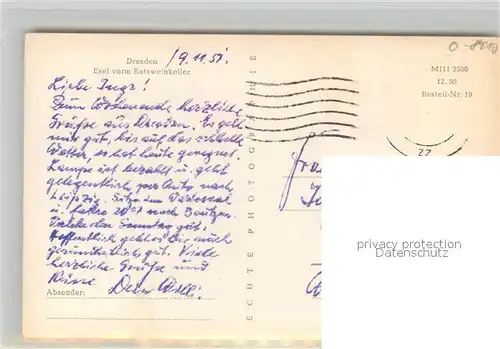 O-8010
Dresden
Esel vorm Ratsweinkeller
19.11.51.
M111 2500
12. 50
Bestell-Nr. 19
Liebe Inge!
Zum Wochenende herzliche
Grüße aus Dresden. Es geht
mir gut, bis auf das schlechte
Wetter, es hat heute geregnet.
Lampe ist bezahlt u. geht
gelegentlich per Auto nach
Leipzig. Sitze im
u. fahre nach Bautzen.
den Sonntag gut.
Hoffentlich geht es Dir auch
gut. Viele
herzliche Grüße und
Küsse Dein
Absender:
ECHTE PHOTOGRAPHIE
22
privacy protection
Datenschutz